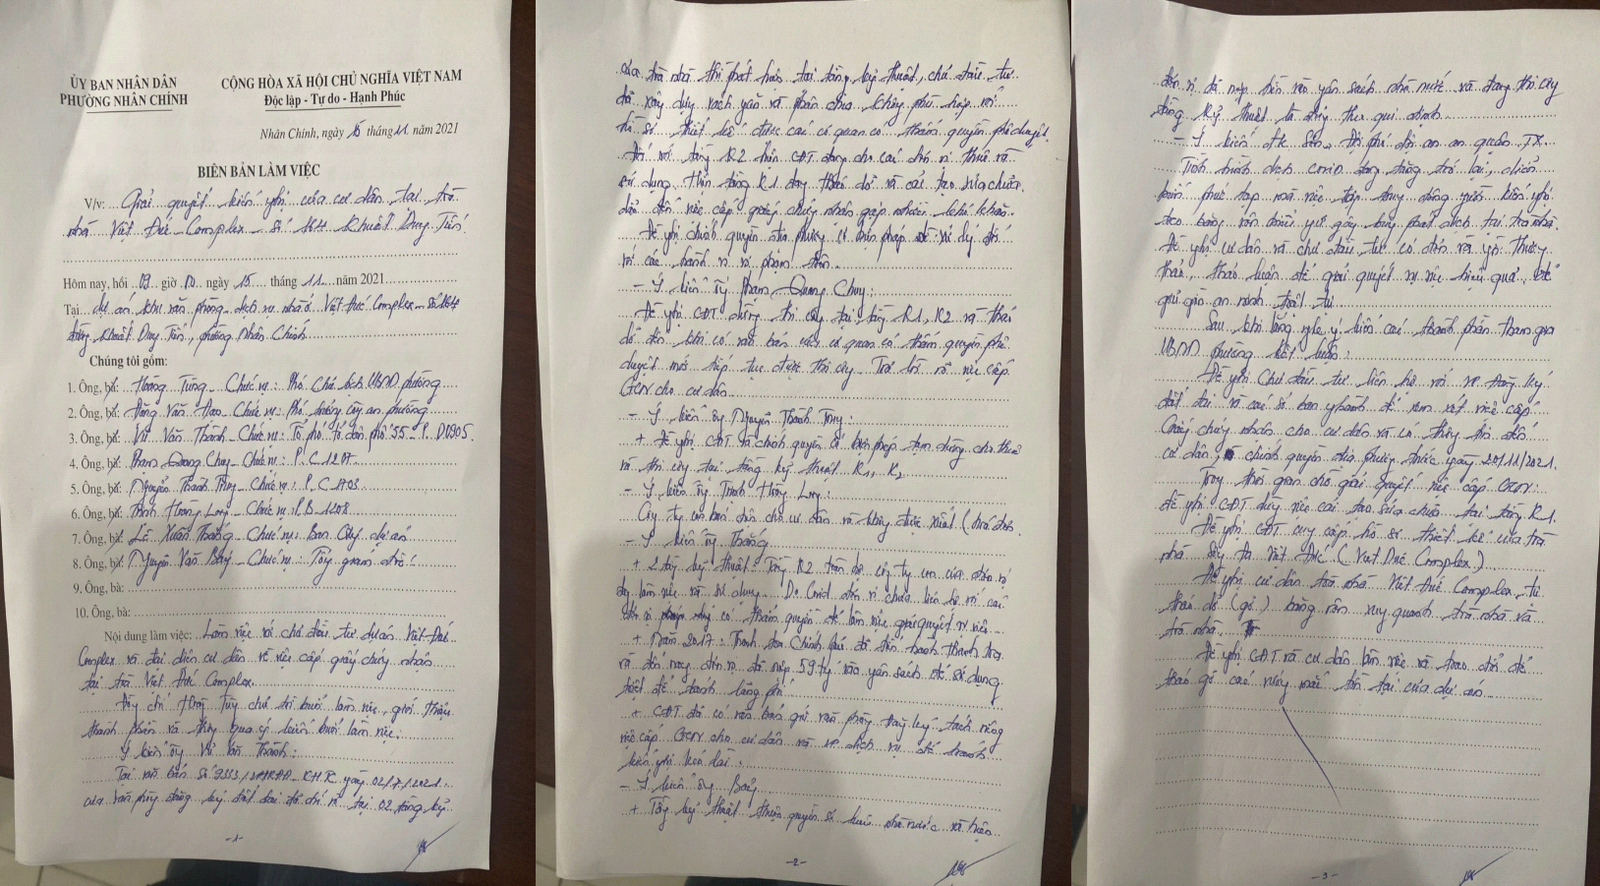 ỦY BAN NHÂN DÂN
PHƯỜNG NHÂN CHÍNH
CỘNG HÒA XÃ HỘI CHỦ NGHĨA VIỆT NAM
Độc lập - Tự do - Hạnh Phúc
Nhân Chính, ngày 15 tháng 11 năm 2021
BIÊN BẢN LÀM VIỆC
V/v: Giải quyết kiến nghị của cư dân tại tòa
nhà Việt Đức Complex - Số 164 Khuất Duy Tiến
Hôm nay, hồi 09 giờ 00 ngày 15 tháng 11 năm 2021
Tại dự án khu văn phòng dịch vụ nhà ở Việt Đức Complex - Số 164
đường Khuất Duy Tiến, phường Nhân Chính
Chúng tôi gồm:
1. Ông, bà: Hoàng Tùng - Chức vụ: Phó chủ tịch UBND phường
2. Ông, bà: Đặng Văn Đạo - Chức vụ: Phó trưởng công an phường
3. Ông, bà: Vũ Văn Thành - Chức vụ: Tổ phó tổ dân phố 55 - P. D0905
4. Ông, bà: Phạm Quang Chung - Chức vụ: P. C1207
5. Ông, bà: Nguyễn Thành Trung - Chức vụ: P. C A03
6. Ông, bà: Trịnh Hoàng Long - Chức vụ: P. B 1208
7. Ông, bà: Lê Xuân Thắng - Chức vụ: Ban QLý dự án
8. Ông, bà: Nguyễn Văn Bảy - Chức vụ: Tổng giám đốc
9. Ông, bà:
10. Ông, bà:
Nội dung làm việc: Làm việc với chủ đầu tư dự án Việt Đức
Complex và đại diện cư dân về việc cấp giấy chứng nhận
tại tòa Việt Đức Complex.
Đồng chí Hoàng Tùng chủ trì buổi làm việc, giới thiệu
thành phần và thông qua ý kiến buổi làm việc.
Ý kiến ông Vũ Văn Thành:
Tại văn bản số 9353/ ngày 02/7/2021
của Văn phòng đăng ký đất đai đã chỉ rõ tại 02 tầng kỹ
-1-
của tòa nhà thì phát hiện tại tầng kỹ thuật, chủ đầu tư
đã xây dựng vách ngăn và phân chia không phù hợp với
hồ sơ thiết kế được các cơ quan có thẩm quyền phê duyệt.
Đối với tầng K2 hiện CĐT đang cho các đơn vị thuê và
sử dụng. Hiện tầng K1 đang tháo dỡ và cải tạo sửa chữa.
dẫn đến việc cấp giấy chứng nhận gặp nhiều khó khăn.
Đề nghị chính quyền địa phương có biện pháp xử lý đối
với các hành vi vi phạm trên.
- Ý kiến ông Phạm Quang Chung:
Đề nghị CĐT dừng thi công tại tầng K1, K2 và tháo
dỡ đến khi có văn bản của cơ quan có thẩm quyền phê
duyệt mới tiếp tục được thi công. Trả lời rõ việc cấp
GCN cho cư dân.
- Ý kiến ông Nguyễn Thành Trung:
+ Đề nghị CĐT và chính quyền có biện pháp tạm dừng cho thuê
và thi công tại tầng kỹ thuật K1, K2
- Ý kiến ông Trịnh Hoàng Long:
Công ty con bán điện cho cư dân và không được xuất hóa đơn
- Ý kiến ông Thắng
+ 2 tầng kỹ thuật: Tầng K2 toàn bộ công ty con của đơn vị
đang làm việc và sử dụng. Do Covid đơn vị chưa liên hệ với các
đơn vị có thẩm quyền để làm việc giải quyết sự việc.
+ Năm 2017: Thanh tra Chính phủ đã tiến hành thanh tra
và đến nay đơn vị đã nộp 59 tỷ vào ngân sách để sử dụng
triệt để tránh lãng phí
+ CĐT đã có văn bản gửi văn phòng đăng ký trách nhiệm
việc cấp GCN cho cư dân và về dịch vụ để tránh
kiến nghị kéo dài.
- Ý kiến ông Bảy
+ Tầng kỹ thuật thuộc quyền sở hữu nhà nước và hiện
-2-
đơn vị đã nộp tiền vào ngân sách nhà nước và đang thi công
tầng kỹ thuật là đúng theo qui định.
- Ý kiến đc Sơn - Đội phó đội an ninh quận TX.
Tình hình dịch covid đang tăng trở lại, diễn
biến phức tạp mà việc tập trung đông người kiến nghị
treo băng rôn nhiều nguy cơ gây bùng phát dịch tại tòa nhà.
Đề nghị cư dân và chủ đầu tư có đơn và ý thương
thảo, thảo luận để giải quyết vụ việc hiệu quả, để
giữ gìn an ninh trật tự.
Sau khi lắng nghe ý kiến các thành phần tham gia
UBND phường kết luận:
Đề nghị Chủ đầu tư liên hệ với vp đăng ký
đất đai và các sở ban ngành để xem xét việc cấp
Giấy chứng nhận cho cư dân và có thông tin đến
cư dân, chính quyền địa phương trước ngày 20/11/2021.
Trong thời gian chờ giải quyết việc cấp GCN:
đề nghị CĐT dừng việc cải tạo sửa chữa tại tầng K1.
Đề nghị CĐT cung cấp hồ sơ thiết kế của tòa
nhà Việt Đức (Việt Đức Complex.)
Đề nghị cư dân tòa nhà Việt Đức Complex, tự
tháo dỡ (gỡ) băng rôn xung quanh tòa nhà và
tòa nhà.
Đề nghị CĐT và cư dân làm việc và trao đổi để
tháo gỡ các vướng mắc tồn tại của dự án.
-3-